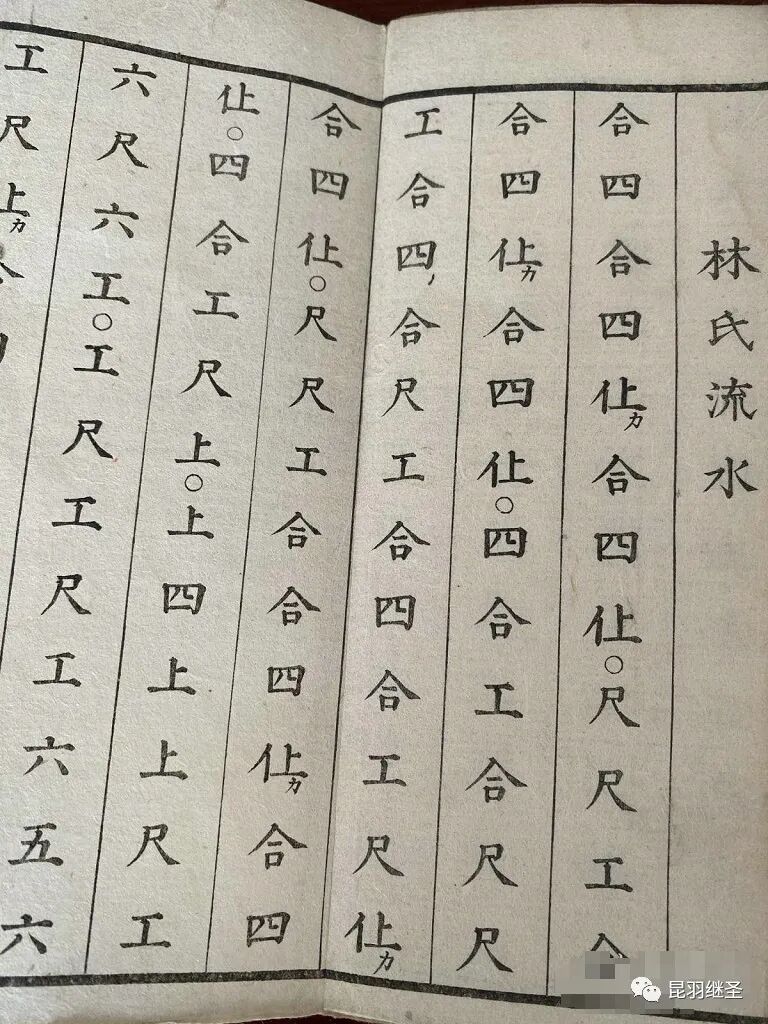 林氏流水
合四合四仩力合四仩○尺尺工
合四仩力合四仩○四合工合尺尺
工合四、合尺工合四合工尺仩力
合四仩○尺尺工合合四仩力合四
仩○四合工尺上○上四上上尺工
六尺六工○工尺工尺工六五六
工尺上力
昆羽继圣